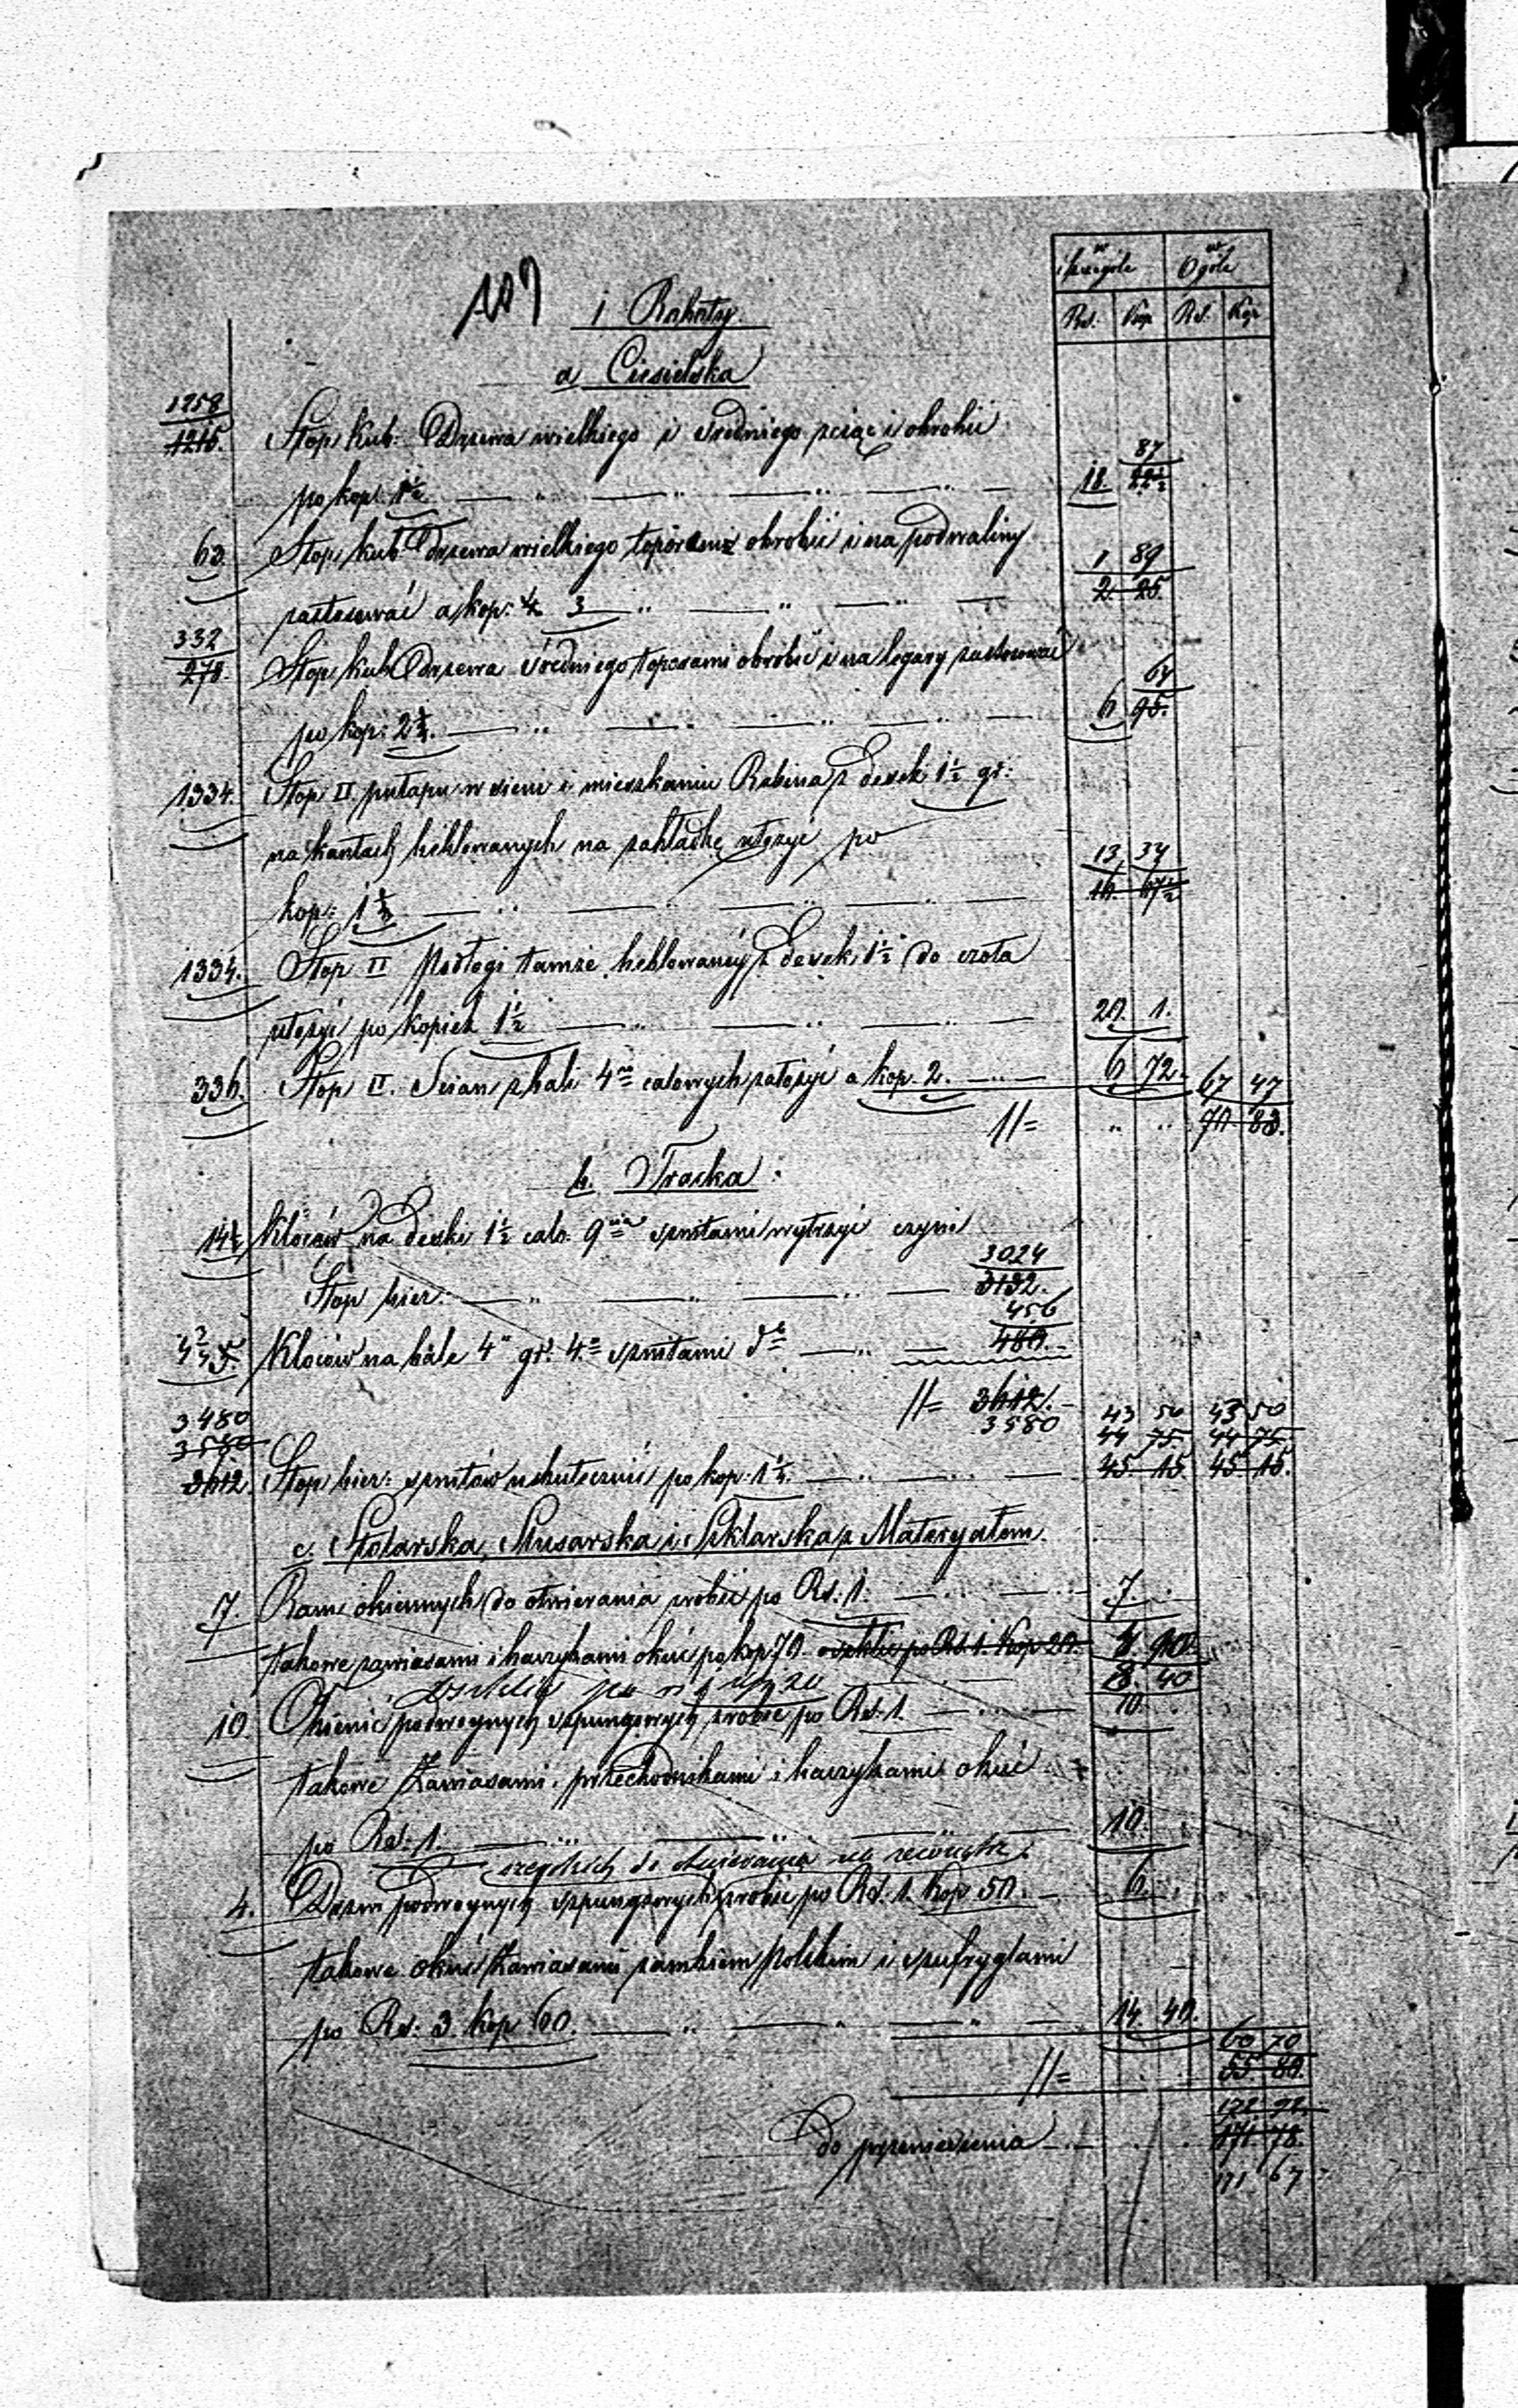 w szczególe w Ogóle
Rs. Kop Rs. Kop
109 i Roboty
a Ciesielska
1258
1215. Stop Kub: Drzewa wielkiego i średniego ściąć i obrobić
87
po kop: 1½ — " — " — " — " — 18. 22½
63. Stop kub: Drzewa wielkiego toporami obrobić i na podwaliny
1 89
zastosować a kop: 4 3 — " — " — " — 2. 25.
332
278. Stop kub Drzewa średniego toporami obrobić i na legary zastosować
64
po kop: 2 — " — " — " — " — 6 95.
1334. Stop II pułapu w sieni i mieszkaniu Rabina z desek 1½ gr:
na kantach heblowanych na zakładkę ułożyć po
13 34
kop: 1½ — " — " — " — " — 16. 67½
1334. Stop II Podłogi tamże heblowanéj z desek 1½ do czoła
ułożyć po kopiek 1½ — " — " — " — 20. 1.
336. Stop II. Ścian z bali 4 calowych założyć a kop. 2. — 6 72. 67 47
//= " " 70 83.
b. Tracka
14½ Kloców na deski 1½ calo. 9 sznitami wytrzyć czyni
3024
Stop bier: — " — " — " — 3132.
456
Kloców na bale 4" gr: 4 sznitami d° — " — 480.
//= 3612.
3480 3580 43 50 43 50
3580 44 75. 44 75.
3612 Stop bier: sznitów uskutecznić po kop: 1¼ — " — " — 45. 15 45 15.
c. Stolarska, Ślusarska i Szklarska z Materyałem
7. Ram okiennych do otwierania zrobić po Rs: 1. — 7.
takowe zawiasami i haczykami okuć po kop 70. oszklić po Rs. 1. Kop 20. 4 90
oszklić po rs 1 kop 20 8. 40
10. Okienic podwoynych szpungowych zrobić po Rs: 1. — 10.
takowe Zawiasami, przechodnikami i haczykami okuć
po Rs: 1. — " — " — 10.
do otwierania na zewnątrz
4. Drzwi podwoynych szpungowych zrobić po Rs. 1. Kop 50. — 6.
takowe okuć Zawiasami zamkiem Polskim i szufryglami
po Rs: 3. kop 60. — " — " — " — 14. 40.
60 70
//= 55. 80.
172 92
do przeniesienia — 171. 78.
171 67